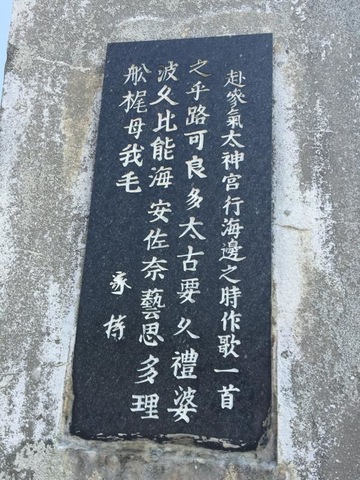 赴參氣太神宮行海邊之時作歌一首
之乎路可良多太古要久禮婆
波久比能海安佐奈藝思多理
舩梶母我毛
家持